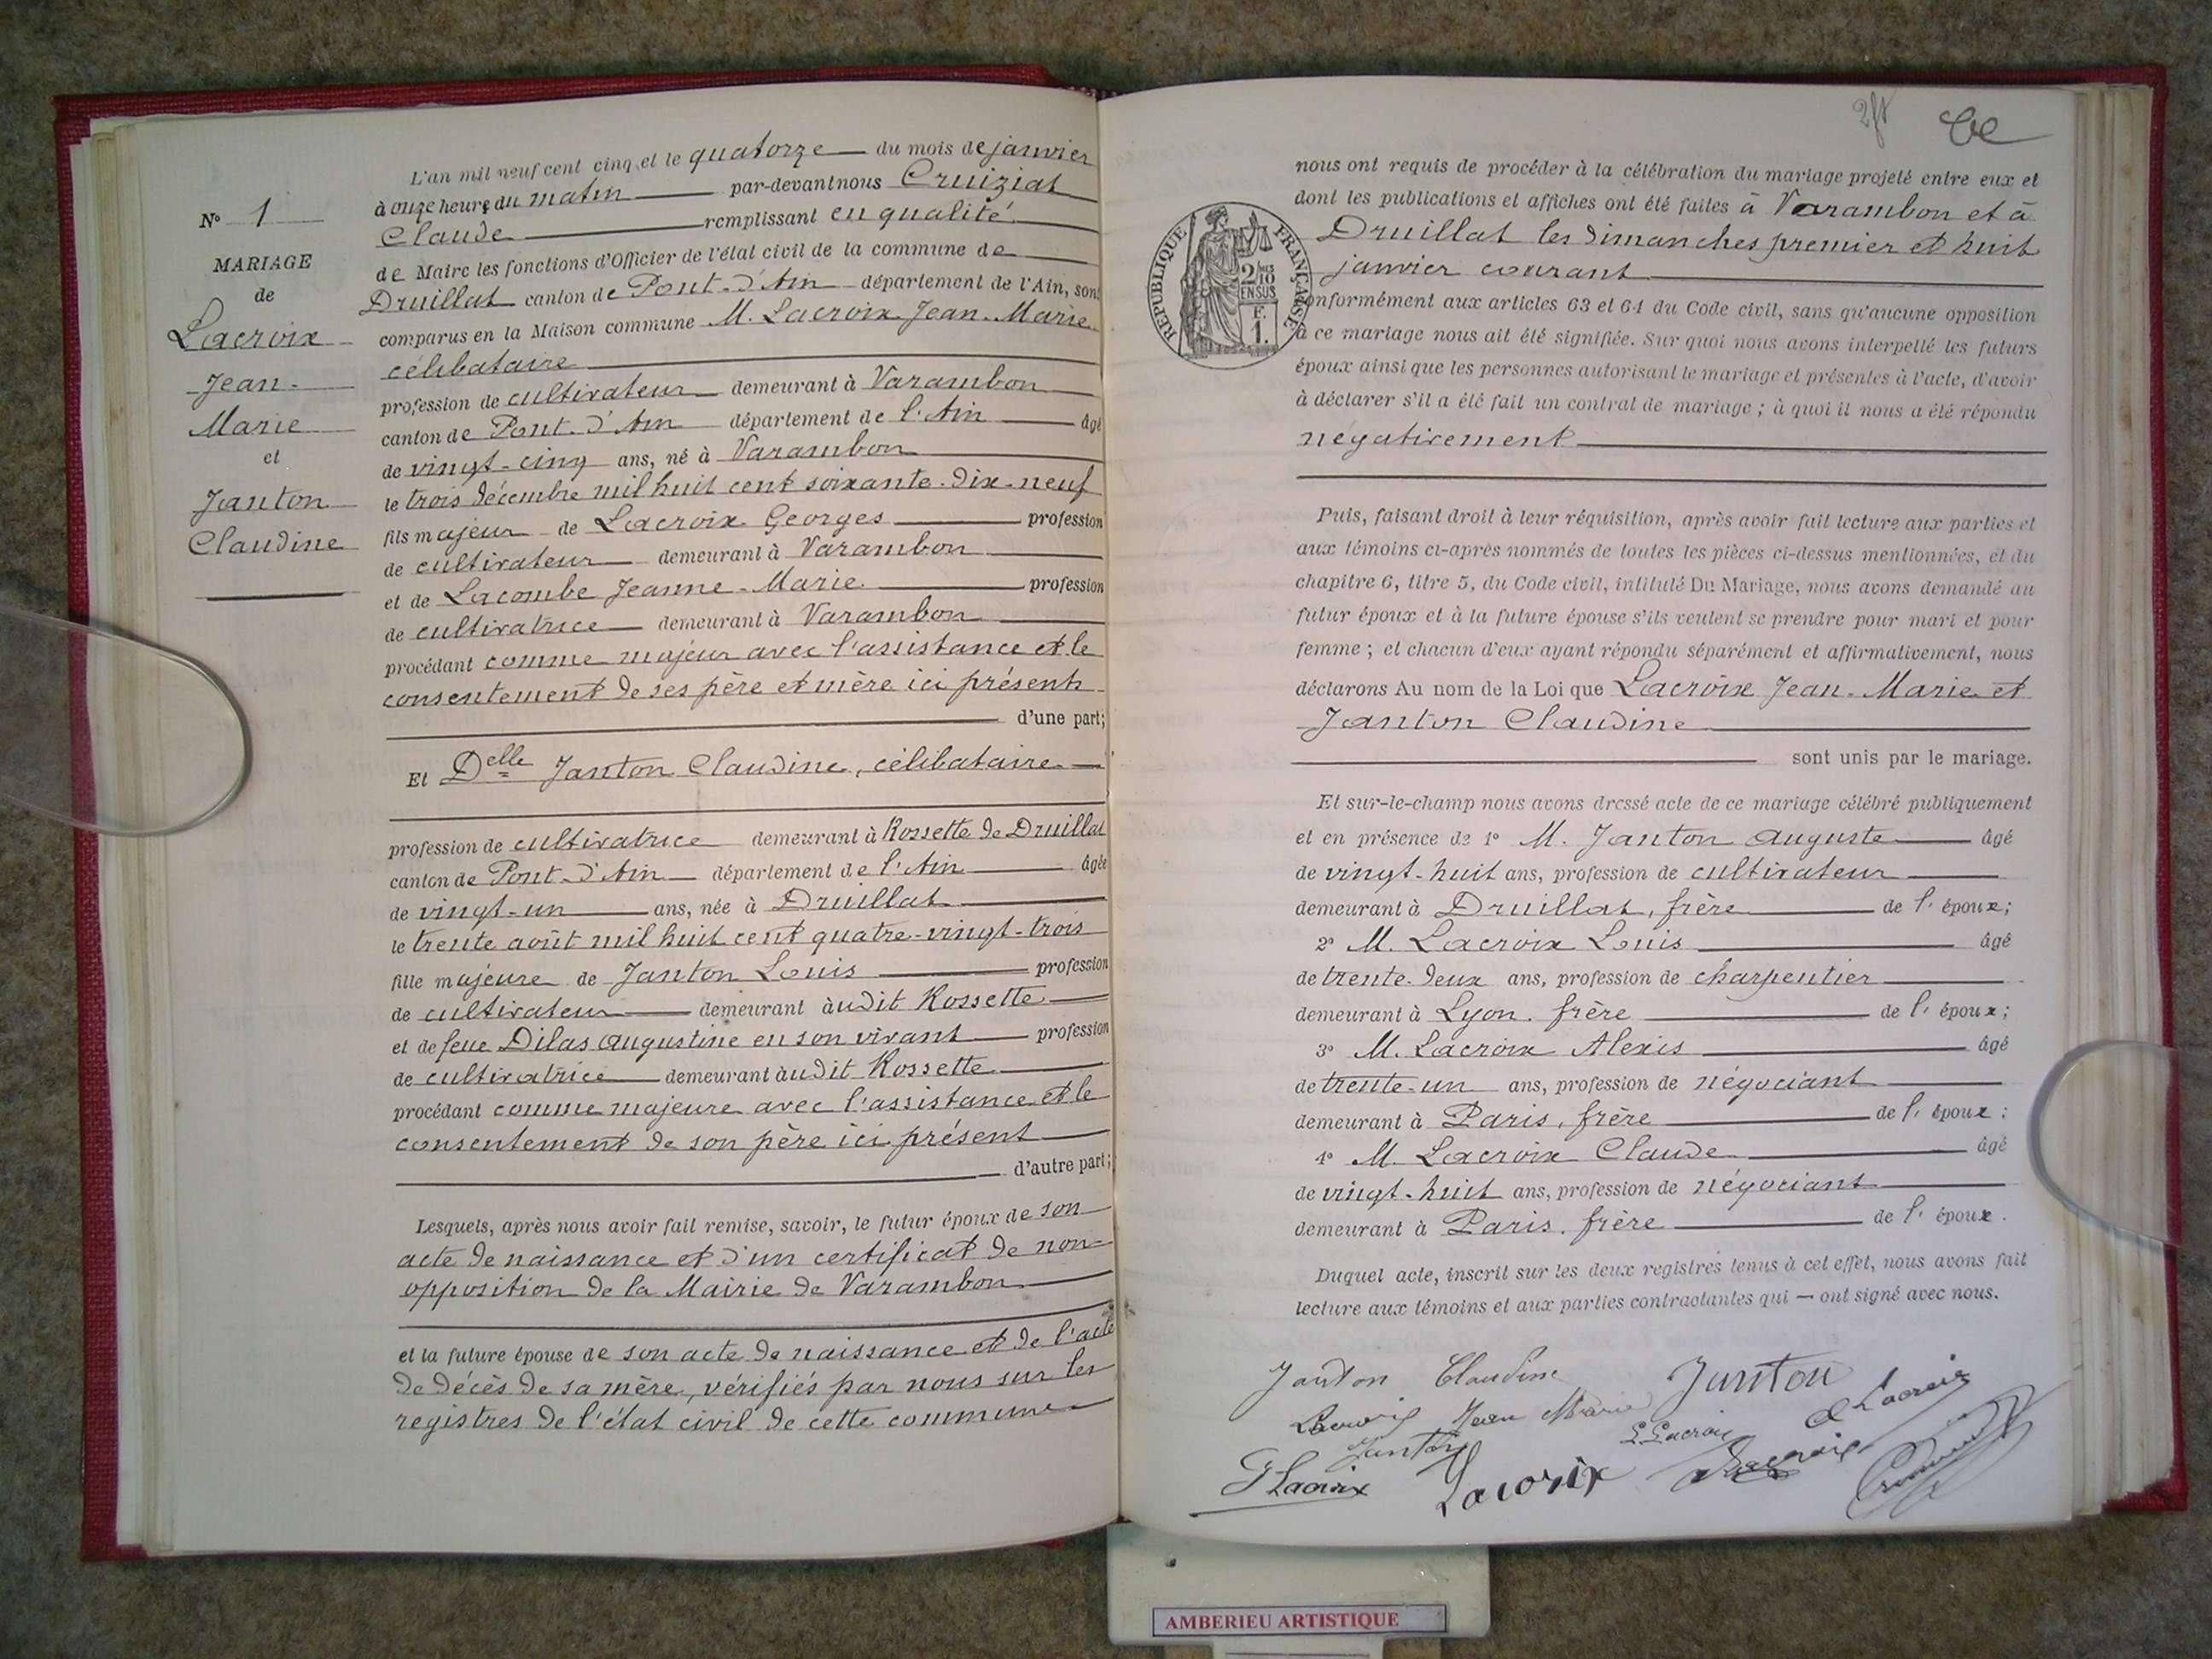 N° 1
MARIAGE
de
Lacroix
Jean-
Marie
et
Janton
Claudine
L'an mil neuf cent cinq, et le quatorze du mois de janvier
à onze heures du matin par-devant nous Cruiziat
Claude remplissant en qualité
de Maire les fonctions d'Officier de l'état civil de la commune de
Druillat canton de Pont-d'Ain département de l'Ain, sont
comparus en la Maison commune M. Lacroix Jean-Marie
célibataire
profession de cultivateur demeurant à Varambon
canton de Pont-d'Ain département de l'Ain âgé
de vingt-cinq ans, né à Varambon
le trois décembre mil huit cent soixante-dix-neuf
fils majeur de Lacroix Georges profession
de cultivateur demeurant à Varambon
et de Lacombe Jeanne-Marie profession
de cultivatrice demeurant à Varambon
procédant comme majeur avec l'assistance et le
consentement de ses père et mère ici présents
d'une part;
Et Delle Janton Claudine, célibataire
profession de cultivatrice demeurant à Rossette de Druillat
canton de Pont-d'Ain département de l'Ain âgée
de vingt-un ans, née à Druillat
le trente août mil huit cent quatre-vingt-trois
fille majeure de Janton Louis profession
de cultivateur demeurant àudit Rossette
et de feue Dilas Augustine en son vivant profession
de cultivatrice demeurant àudit Rossette
procédant comme majeure avec l'assistance et le
consentement de son père ici présent
d'autre part;
Lesquels, après nous avoir fait remise, savoir, le futur époux de son
acte de naissance et d'un certificat de non-
opposition de la Mairie de Varambon
et la future épouse de son acte de naissance et de l'acte
de décès de sa mère, vérifiés par nous sur les
registres de l'état civil de cette commune
nous ont requis de procéder à la célébration du mariage projeté entre eux et
dont les publications et affiches ont été faites à Varambon et à
Druillat les dimanches premier et huit
janvier courant
RÉPUBLIQUE FRANÇAISE
2/10
EN SUS
F.
1.
conformément aux articles 63 et 64 du Code civil, sans qu'aucune opposition
à ce mariage nous ait été signifiée. Sur quoi nous avons interpellé les futurs
époux ainsi que les personnes autorisant le mariage et présentes à l'acte, d'avoir
à déclarer s'il a été fait un contrat de mariage ; à quoi il nous a été répondu
négativement
Puis, faisant droit à leur réquisition, après avoir fait lecture aux parties et
aux témoins ci-après nommés de toutes les pièces ci-dessus mentionnées, et du
chapitre 6, titre 5, du Code civil, intitulé Du Mariage, nous avons demandé au
futur époux et à la future épouse s'ils veulent se prendre pour mari et pour
femme ; et chacun d'eux ayant répondu séparément et affirmativement, nous
déclarons Au nom de la Loi que Lacroix Jean-Marie et
Janton Claudine
sont unis par le mariage.
Et sur-le-champ nous avons dressé acte de ce mariage célébré publiquement
et en présence de 1° M. Janton Auguste âgé
de vingt-huit ans, profession de cultivateur
demeurant à Druillat, frère de l'époux;
2° M. Lacroix Louis âgé
de trente-deux ans, profession de charpentier
demeurant à Lyon. frère de l'époux;
3° M. Lacroix Alexis âgé
de trente-un ans, profession de négociant
demeurant à Paris, frère de l'époux;
4° M. Lacroix Claude âgé
de vingt-huit ans, profession de négociant
demeurant à Paris. frère de l'époux.
Duquel acte, inscrit sur les deux registres tenus à cet effet, nous avons fait
lecture aux témoins et aux parties contractantes qui — ont signé avec nous.
Janton Claudine Janton
Lacroix Jean Marie L. Lacroix Lacroix
Janton
G Lacroix Lacroix Lacroix
AMBERIEU ARTISTIQUE